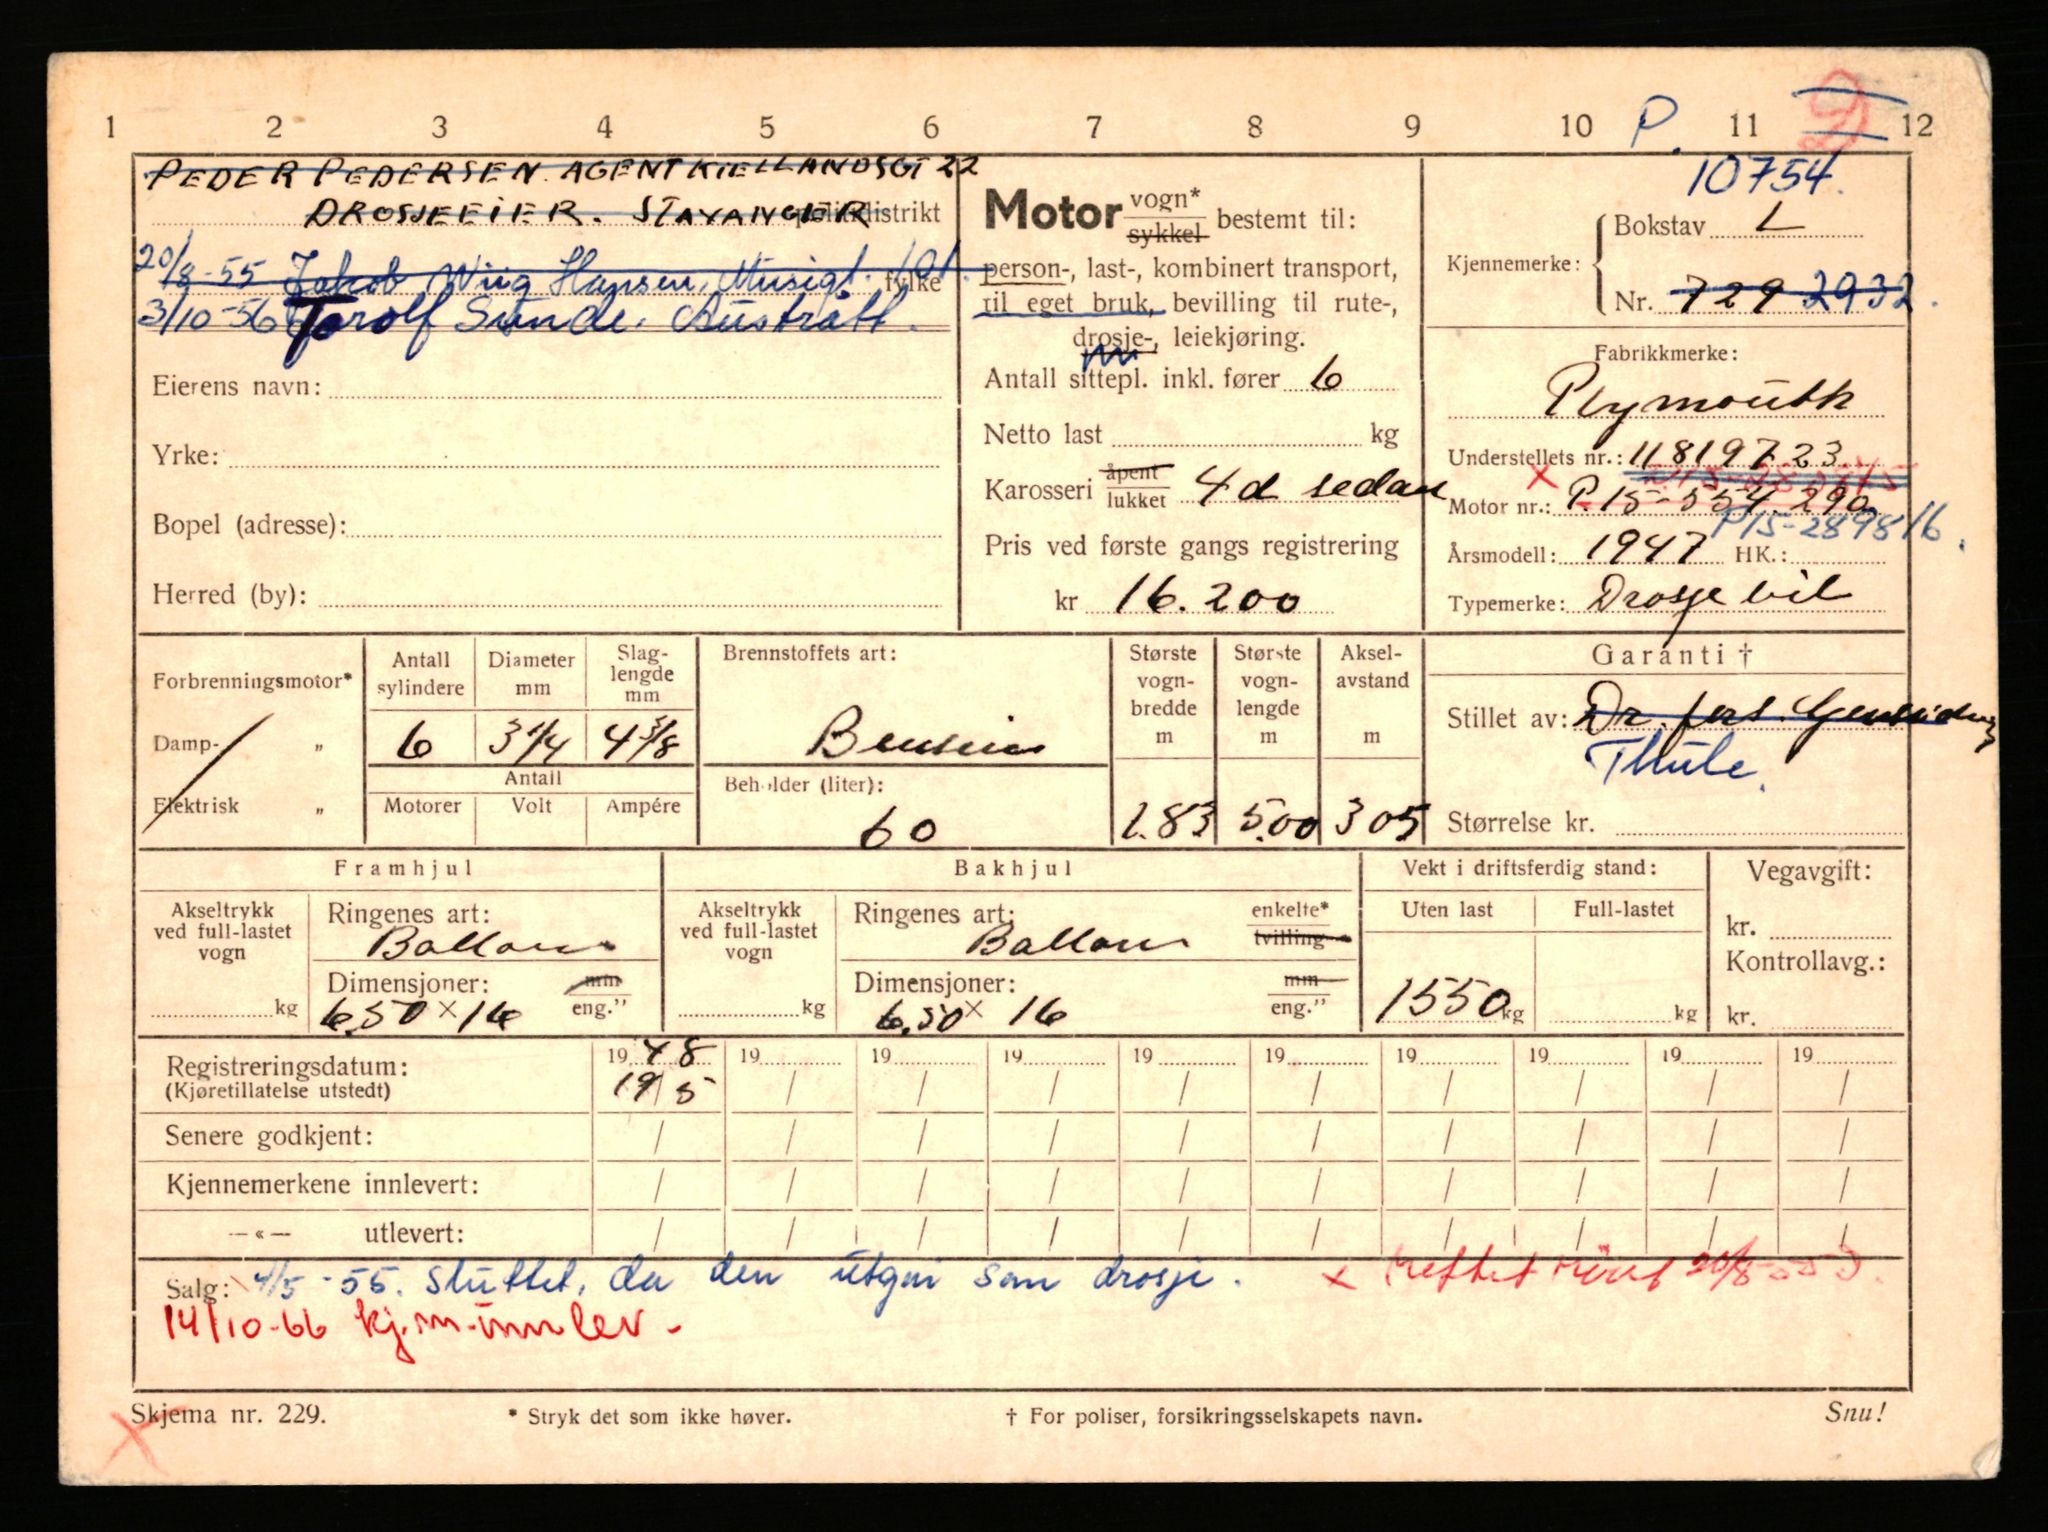 1 2 3 4 5 6 7 8 9 10 P. 11 12
PEDER PEDERSEN. AGENT KIELLANDSGT 22
DROSJEEIER. STAVANGER politidistrikt
20/8-55 Jakob Wiig Hansen, Musegt. 101. fylke
3/10-56 Torolf Sunde. Austrått.
Eierens navn:
Yrke:
Bopel (adresse):
Herred (by):
Motor vogn* sykkel bestemt til:
person-, last-, kombinert transport,
til eget bruk, bevilling til rute-,
drosje-, leiekjøring.
Antall sittepl. inkl. fører 6
Netto last kg
Karosseri åpent lukket 4 d sedan
Pris ved første gangs registrering
kr 16.200
10754.
Kjennemerke: Bokstav L
Nr. 729 2932.
Fabrikkmerke:
Plymouth
Understellets nr.: 11819723
x Motor nr.: P.15-554.290
P15-289816.
Årsmodell: 1947 HK.:
Typemerke: Drosje bil
Forbrenningsmotor*
Damp- „
Elektrisk „
Antall sylindere Diameter mm Slag-lengde mm
6 3 1/4 4 3/8
Antall
Motorer Volt Ampére
Brennstoffets art:
Bensin
Beholder (liter):
60
Største vogn-bredde m
1.83
Største vogn-lengde m
5.00
Aksel-avstand m
3 05
Garanti †
Stillet av: Dr. pers.
Thule.
Størrelse kr.
Framhjul
Akseltrykk ved full-lastet vogn
kg
Ringenes art:
Ballon
Dimensjoner: mm
6.50 x 16 eng.”
Bakhjul
Akseltrykk ved full-lastet vogn
kg
Ringenes art: enkelte*
Ballon tvilling
Dimensjoner: mm
6.50 x 16 eng.”
Vekt i driftsferdig stand:
Uten last Full-lastet
1550 kg kg
Vegavgift:
kr.
Kontrollavg.:
kr.
Registreringsdatum: 19 48 19 19 19 19 19 19 19 19 19
(Kjøretillatelse utstedt) 19/5 / / / / / / / / /
Senere godkjent: / / / / / / / / / /
Kjennemerkene innlevert: / / / / / / / / / /
—«— utlevert: / / / / / / / / / /
Salg: 4/5-55. sluttet, da den utgår som drosje. x rettet 20/8-55
14/10-66 kj.m. innlev-
Skjema nr. 229. * Stryk det som ikke høver. † For poliser, forsikringsselskapets navn. Snu!